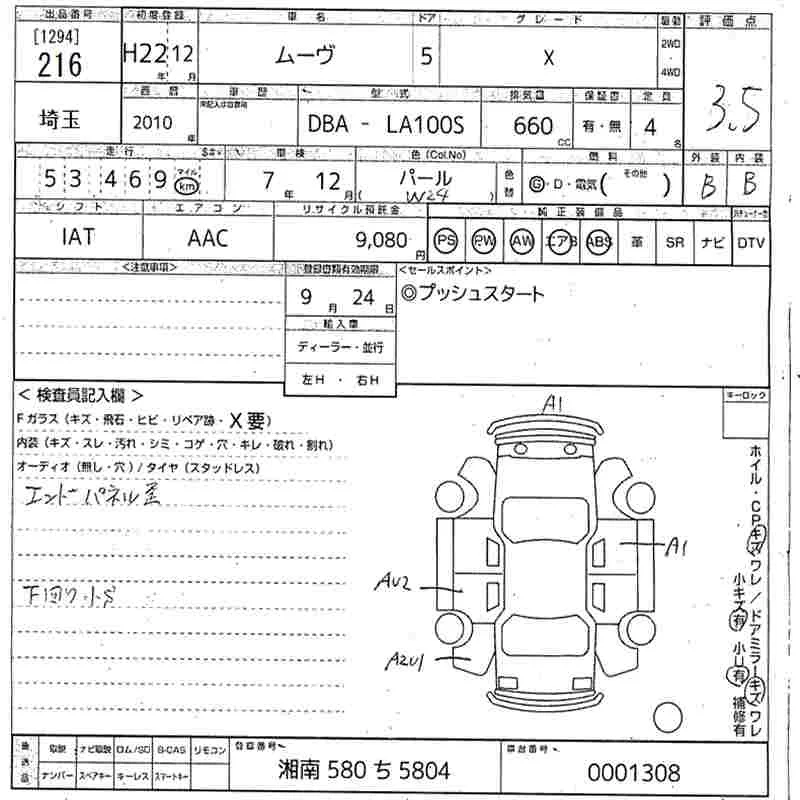 出品番号 初度登録 車名 ドア グレード 駆動 評価点
[1294]
216 H22 12 ムーヴ 5 X 2WD
年 月 ・4WD
3.5
西暦 車歴 型式 排気量 保証書 定員
埼玉 2010 年 DBA - LA100S 660 CC 有・無 4 名
走行 車検 色 (Col.No) 燃料 外装 内装
53469 マイル km 7 年 12 月 パール 色替 G・D・電気( その他 ) B B
( W24 )
シフト エアコン リサイクル預託金 純正装備品
IAT AAC 9,080 円 PS PW AW エアB ABS 革 SR ナビ DTV
<注意事項> 登録書類有効期限 <セールスポイント>
9 月 24 日 ◎プッシュスタート
輸入車
ディーラー・並行
左H ・ 右H
< 検査員記入欄 > キーロック
Fガラス (キズ・飛石・ヒビ・リペア跡・X要)
内装 (キズ・スレ・汚れ・シミ・コゲ・穴・キレ・破れ・割れ)
オーディオ (無し・穴) / タイヤ (スタッドレス)
エンドパネル歪
下回り小S
A1
A1
AU2
A2U1
ホイル・CPキズ ワレ / ドアミラーキズ ワレ
小キズ有 小U有 補修有
後送品 取説 ナビ取説 ロム/SD B-CAS リモコン 登録番号 車台番号
ナンバー スペアキー キーレス スマートキー 湘南 580 ち 5804 0001308